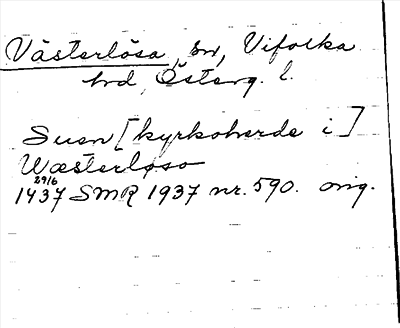 Västerlösa, sn, Vifolka
hd, Österg. l.
Suen [kyrkoherde i]
Wæsterløso
29/6
1437 SMR 1937 nr. 590. orig.